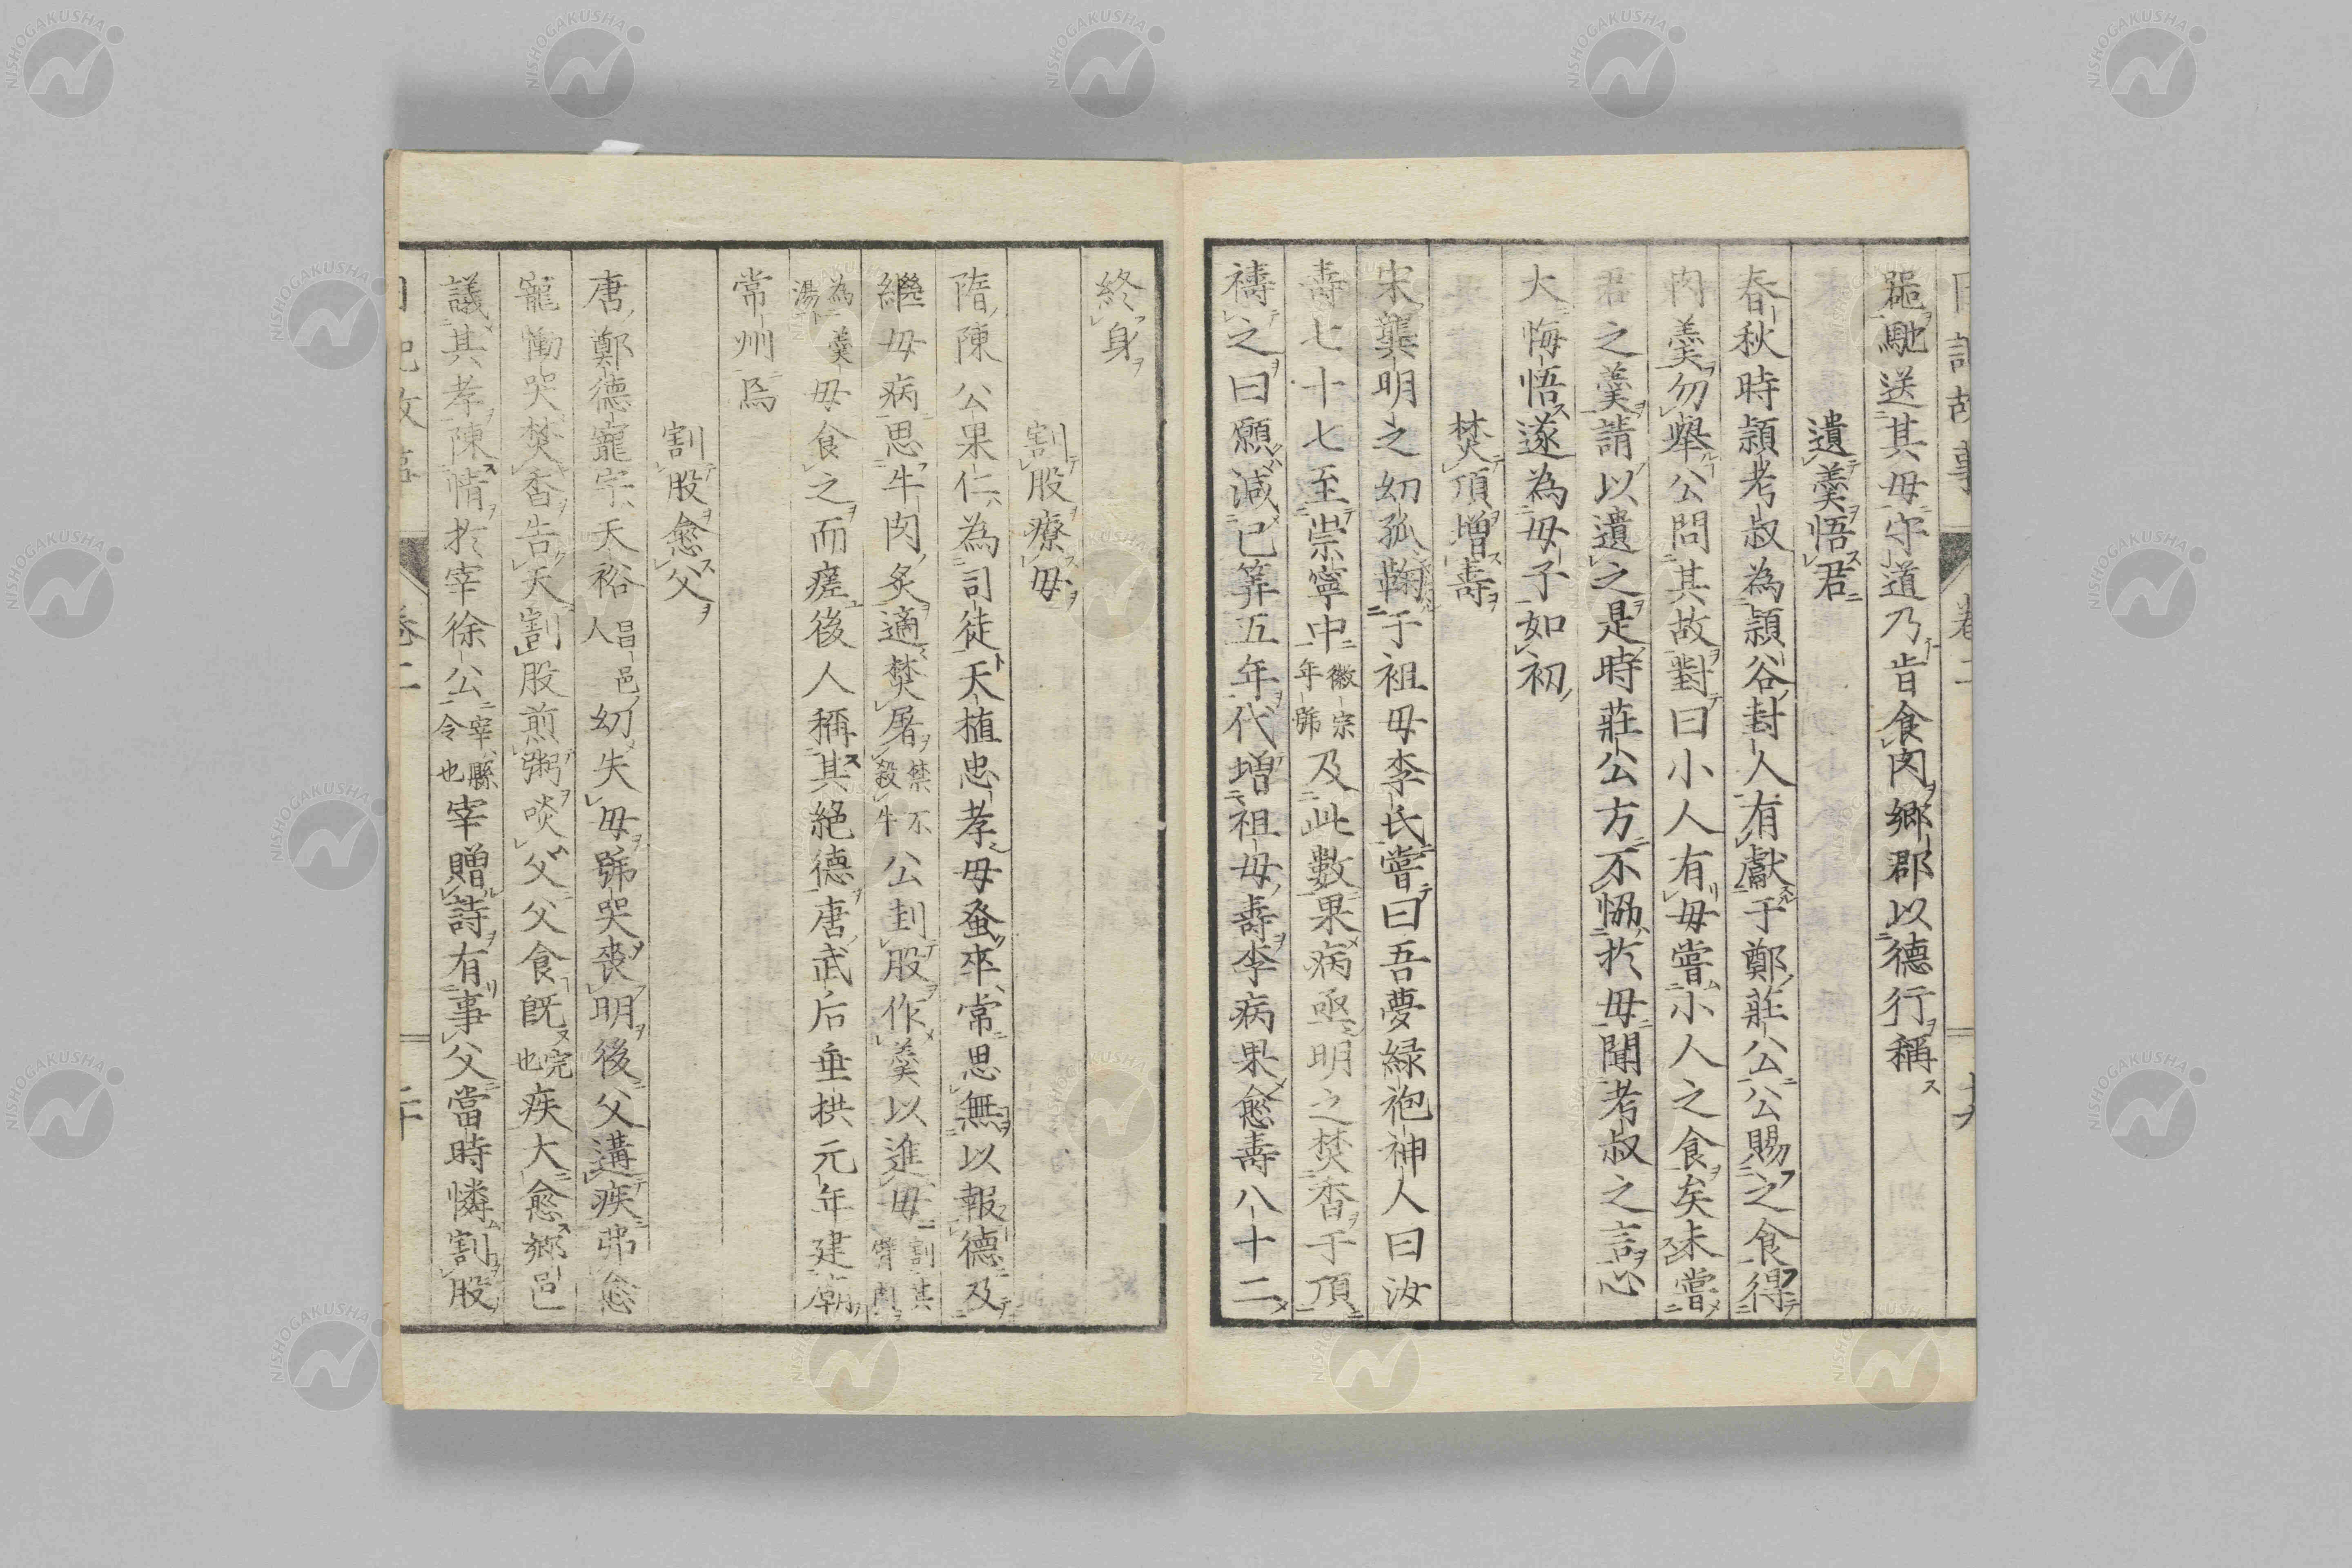 罷馳送其母守道乃肯食肉鄉郡以德行稱ス
遺羹悟君
春秋時潁考叔為潁谷封人有獻于鄭莊公公賜之食得
肉羹勿舉公問其故對曰小人有母嘗小人之食矣未嘗
君之羹請以遺之是時莊公方不恊於母聞考叔之言心
大悔悟遂為母子如初
焚頂增壽
宋龔明之幼孤鞠于祖母李氏嘗曰吾夢緑袍神人曰汝
壽七十七至崇寧中徽宗年號及此數果病亟明之焚香于頂
禱之曰願減已筭五年代增祖母壽李病果愈壽八十二
終身
割股療母
隋陳公果仁為司徒天植忠孝母蚤卒常思無以報德及
繼母病思牛肉炙適焚屠禁不殺牛公刲股作羹以進母割其臂肉
為羹湯母食之而瘥後人稱其絕德唐武后垂拱元年建廟
常州焉
割股愈父
唐鄭德寵字天裕昌邑人幼失母號哭喪明後父遘疾弗愈
寵慟哭焚香告天割股煎粥啖父父食既完也疾大愈鄉邑
議其孝陳情於宰徐公宰縣令也宰贈詩有事父當時憐割股